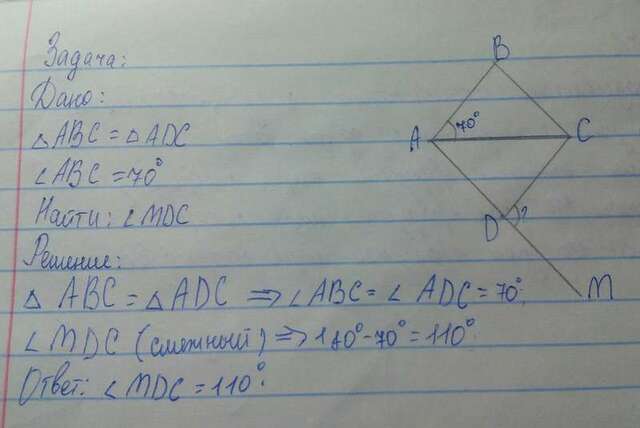 Задача:
Дано:
△ABC = △ADC
∠ABC = 70°
Найти: ∠MDC
Решение:
△ ABC = △ADC ⇒ ∠ABC = ∠ ADC = 70°;
∠ MDC (смежный) ⇒ 180° - 70° = 110°.
Ответ: ∠ MDC = 110°.
B
A 70° C
D ?
M